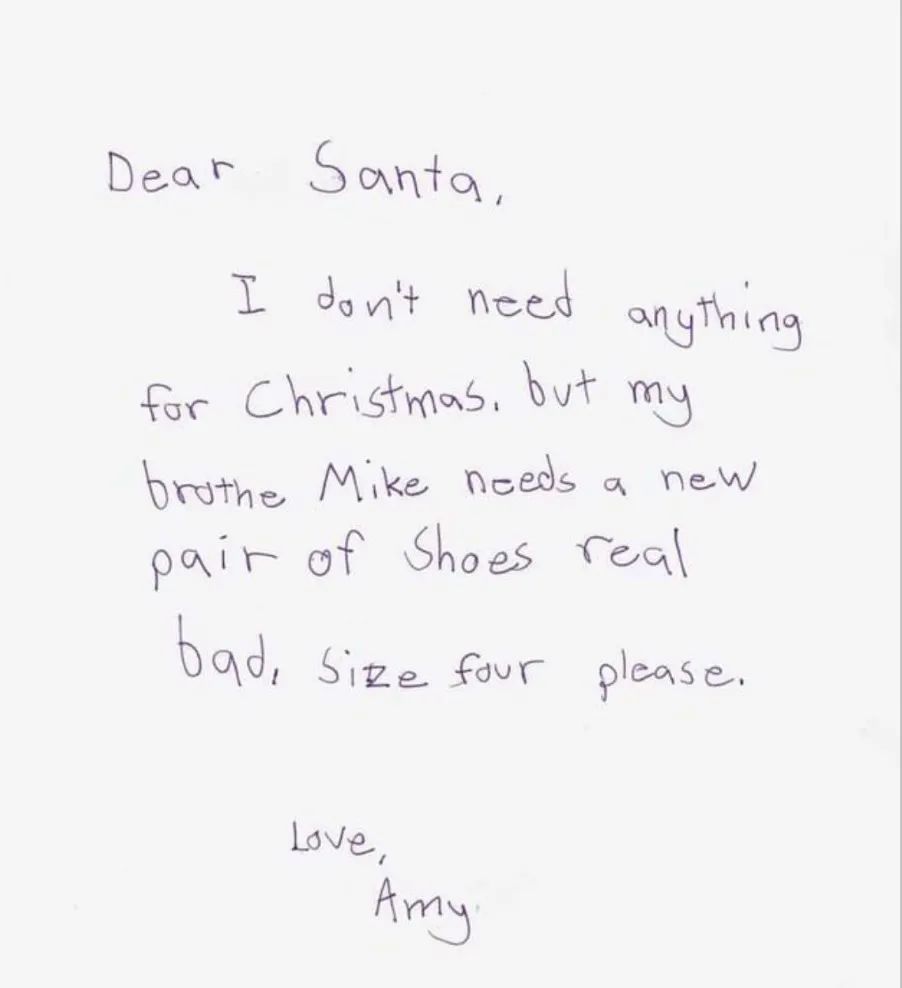 Dear Santa,
I don't need anything
for Christmas. but my
brothe Mike needs a new
pair of Shoes real
bad, Size four please.
Love,
Amy